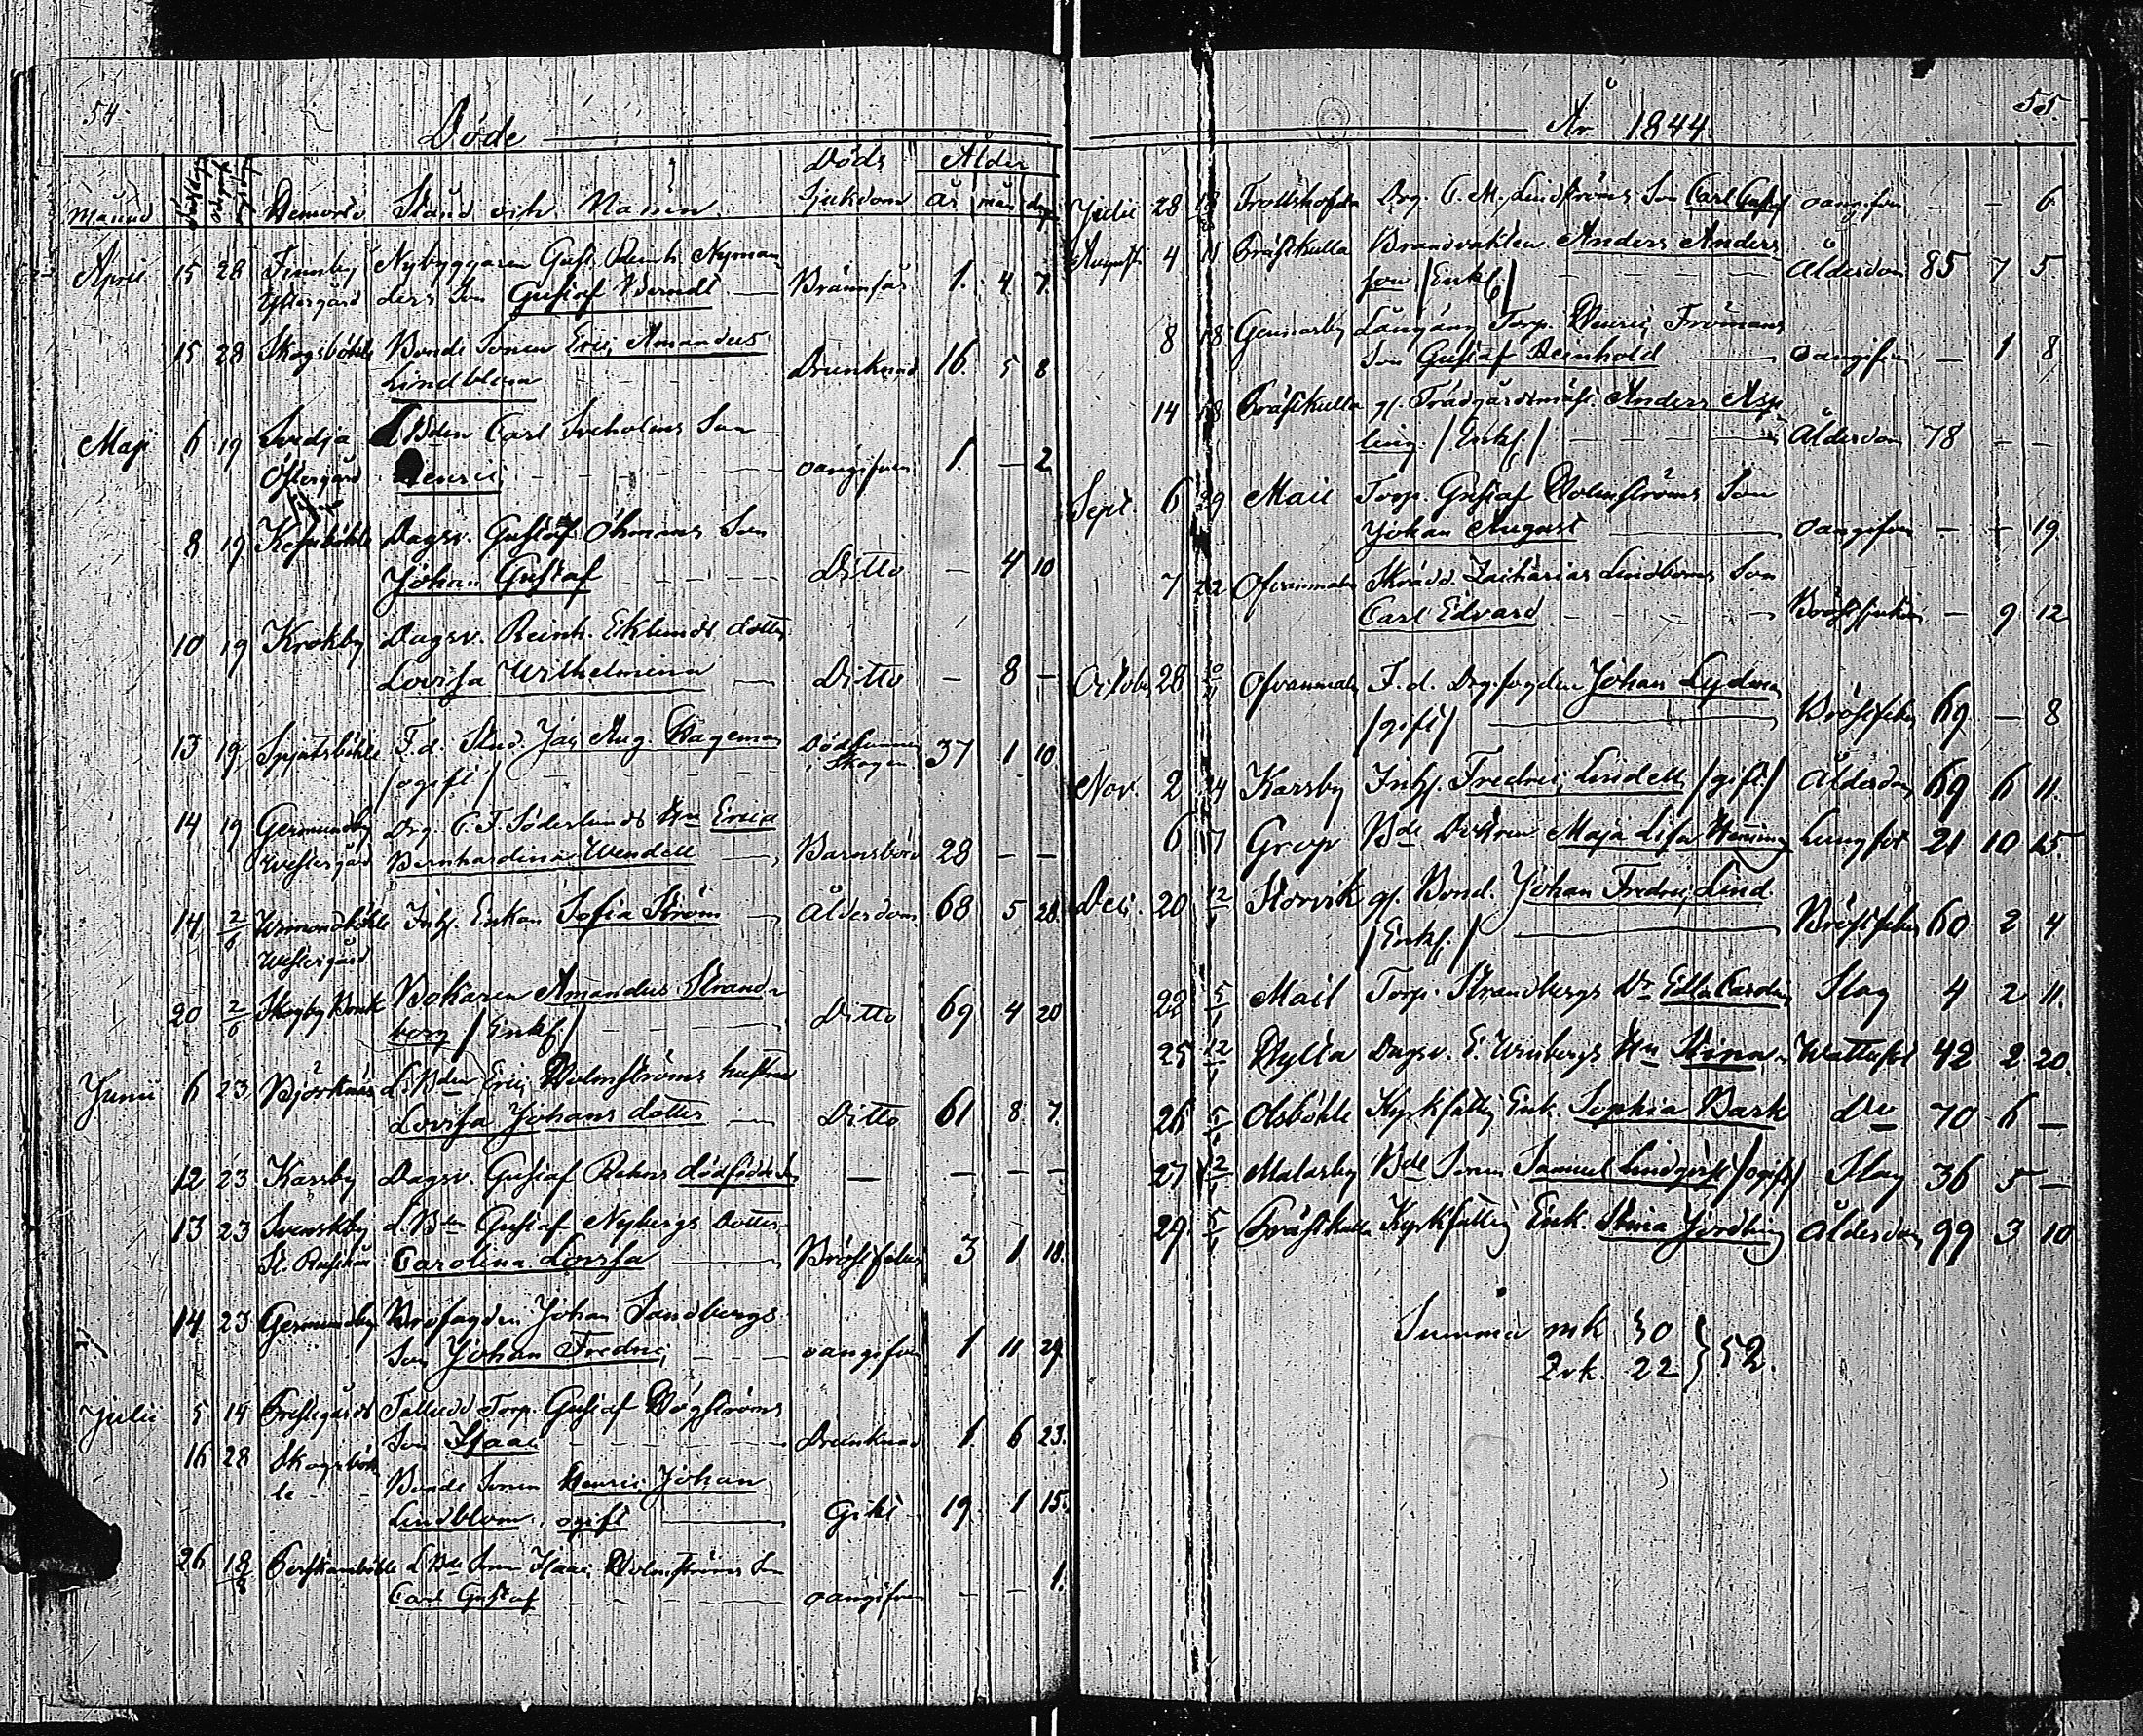 54.
Döde
Döds Ålder
Månad Hemort Stånd och Namn Sjukdom år mån dag
April 15 28 Finnby Nybyggaren Gust. Reinh. Nyman
Ystergård ders Son Gustaf Berndt Brännsår 1. 4 7.
15 28 Skogsböhle Bonde Sonen Eric Amandus
Lindblom Drunknad 16 5 8
Maji 6 19 Svedja Bden Carl Son
Östergård Henric oangifven 1. — 2
8 19 Dagsv. Gustaf Öhmans Son
Johan Gustaf Ditto — 4 10
10 19 Krokby Dagsv. Reinh. Eklunds dotter
Lovisa Wilhelmina Ditto — 8 —
13 19 Spjutsböhle F.d. Stud. Jac. Aug. Hageman Död funnen
/ogift/ i Skogen 37 1 10
14 19 Germundby Drg. C. F. Söderlunds Hu Erica
Westergård Bernhardina Wendell Barnsbörd 28 — —
14 2/6 Inh. Enkan Sofia Ström Ålderdom 68 5 28
Westergård
20 2/6 Skogby Bruk Bokaren Amandus Strand
berg /Enkl./ Ditto 69 4 20
Junii 6 23 Björknäs L. Bden Eric Holmströms hustru
Lovisa Johans dotter Ditto 61 8 7.
12 23 Karsby Dagsv. Gustaf dödfödde — — — —
13 23 Svenskby L. Bden Gustaf Nybergs dotter
Carolina Lovisa Bröstfeber 3 1 18.
14 23 Germundby Brofogden Johan Sandbergs
Son Johan Fredric oangifven 1 11 29.
Julii 5 14 Prestegårds Torp. Gustaf Högströms
Son Isaac Drunknad 1. 6 23.
16 28 Skogsböh
le Bonde Sonen Henric Johan
Lindblom, ogift Gikt 19. 1 15.
26 18/8 L. Bde Sonen Isaac Holmströms Son
Carl Gustaf oangifven — — 1.
År 1844. 55.
Julii 28 18/8 Trollshofda Drg. C. M. Lindströms Son Carl Gustaf oangifven — — 6.
Augusti 4 11 Prästkulla Brandvakten Anders Anders
son /Enkl./ Ålderdom 85 7 5
8 18 Gennarby Långäng Torp. Henric Fromans
Son Gustaf Reinhold oangifven — 1 8
14 18 Prästkulla gl. Trädgårdsmäst. Anders Asp
ling. /Enkl./ Ålderdom 78 — —
Sept. 6 29 Mail Torp. Gustaf Holmströms Son
Johan August oangifven — — 19.
7 22 Ofvanmalm Skrädd. Zacharias Lindboms Son
Carl Edvard Bröstsjukdom — 9 12
October 28 10/11 Ofvanmalm F.d. Drg.fogden Johan Lydman
/gift/ Bröstfeber 69 — 8
Nov. 2 24 Karsby Inh. Fredric Lindell /gift/ Ålderdom 69 6 11.
6 17 Grop Bde Dottren Maja Lisa Lungsot 21 10 15.
Dec. 20 12/1 Storvik gl. Bond. Johan Fredric Lind
/Enkl./ Bröstfeber 60 2 4
22 5/1 Mail Torp. Strandbergs Dr Edla Carolin Slag 4 2 11.
25 12/1 Hylta Dagsv. E. Hu Stina Wattusot 42 2 20.
26 5/1 Olsböhle Kyrkfattig Enk. Sophia Bark Do 70 6 —
27 12/1 Malarby Bde Sonen Samuel Lindqvist /ogift/ Slag 36 5 —
29. 5/1 Prästkulla Kyrkfattig Enk. Stina Jordling Ålderdom 99 3 10
Summa mk 30 } 52.
Qvk. 22